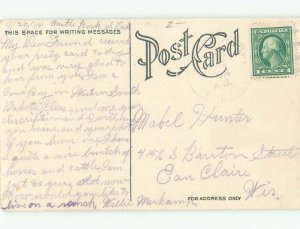 4/20/14 Castle Rock S. Dak
THIS SPACE FOR WRITING MESSAGES
Post Card
My Dear Friend received
your pretty card to day
and was very glad to
hear from you. I am a
Cow Boy in Western South
Dakota. Please send me your
discription and I will tell
you more, and your photo
if you have one. I have
quite a nice bunch of
horses and cattle. I am
just 30 years old now
How would you like to
live on a ranch. Willie
Mabel Hunter
Barston Street
Eau Claire
Wis.
FOR ADDRESS ONLY